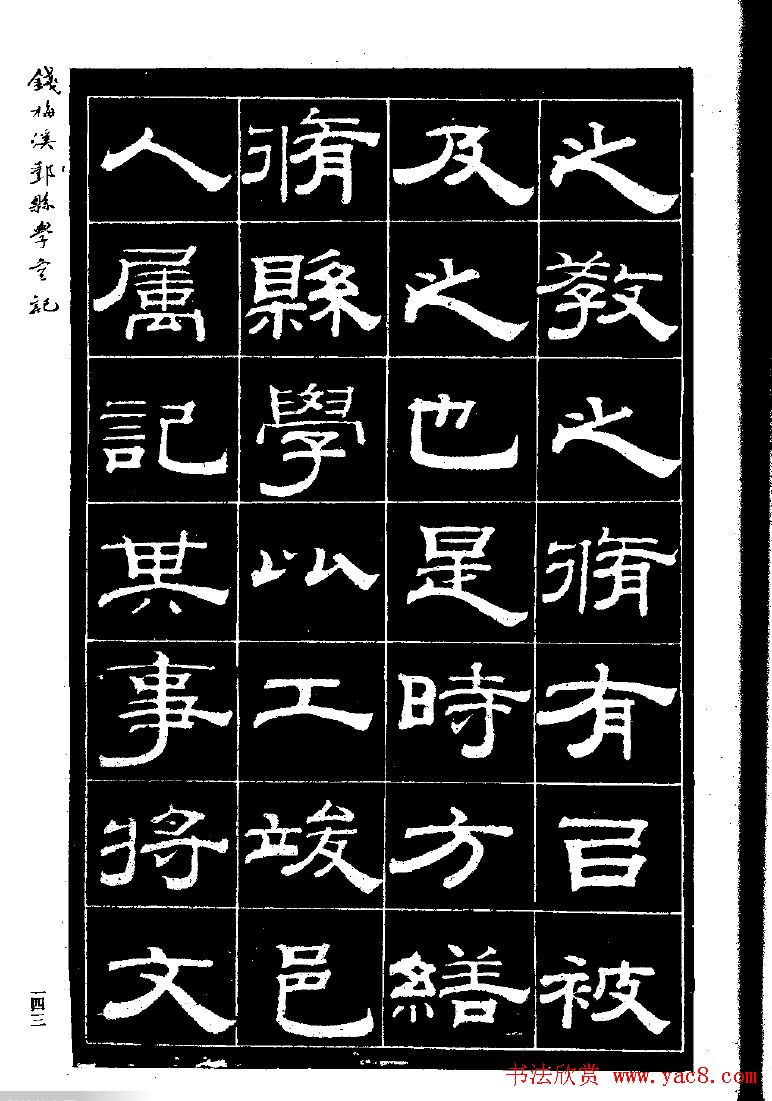 之教之脩有㠯被
及之也是時方繕
脩縣學以工竣邑
人属記其事将文
錢梅溪鄞縣學宮記
一四三
书法欣赏 www.yac8.com